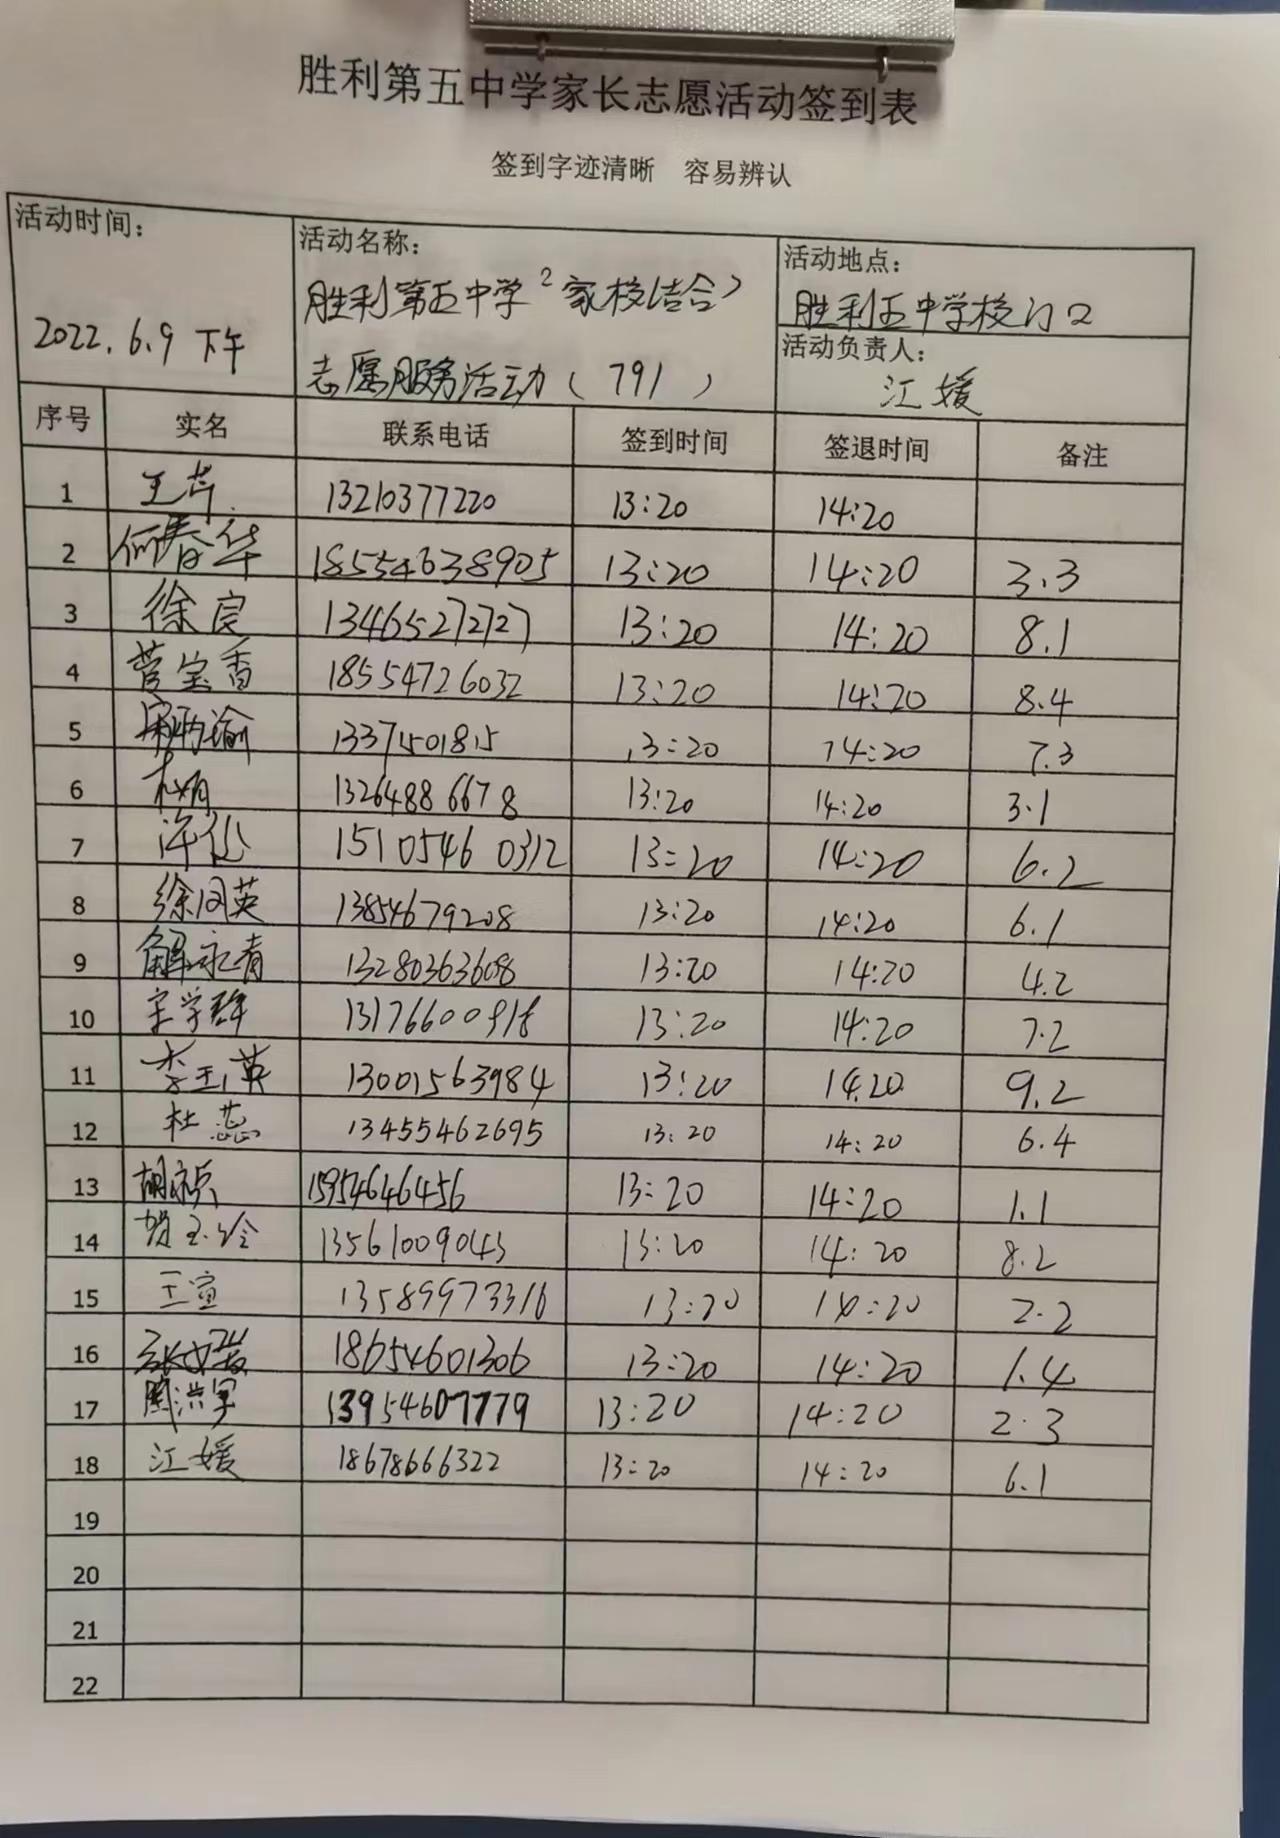 胜利第五中学家长志愿活动签到表
签到字迹清晰 容易辨认
活动时间：
2022.6.9 下午
活动名称：
胜利第五中学2家校结合>
志愿服务活动（791）
活动地点：
胜利五中学校门口
活动负责人：
江媛
序号 实名 联系电话 签到时间 签退时间 备注
1 王芹 13210377220 13:20 14:20
2 何春华 18554638905 13:20 14:20 3.3
3 徐良 13465272727 13:20 14:20 8.1
4 菅宝香 18554726032 13:20 14:20 8.4
5 13371501815 13:20 14:20 7.3
6 13264886678 13:20 14:20 3.1
7 15105460312 13:20 14:20 6.2
8 徐同英 13854679208 13:20 14:20 6.1
9 解永青 13280363608 13:20 14:20 4.2
10 宋学群 13176600918 13:20 14:20 7.2
11 李玉英 13001563984 13:20 14:20 9.2
12 杜蕊 13455462695 13:20 14:20 6.4
13 15954646456 13:20 14:20 1.1
14 贺玉玲 13561009043 13:20 14:20 8.2
15 王宣 13589973316 13:20 14:20 2.2
16 18654601306 13:20 14:20 1.4
17 13954607779 13:20 14:20 2.3
18 江媛 18678666322 13:20 14:20 6.1
19
20
21
22